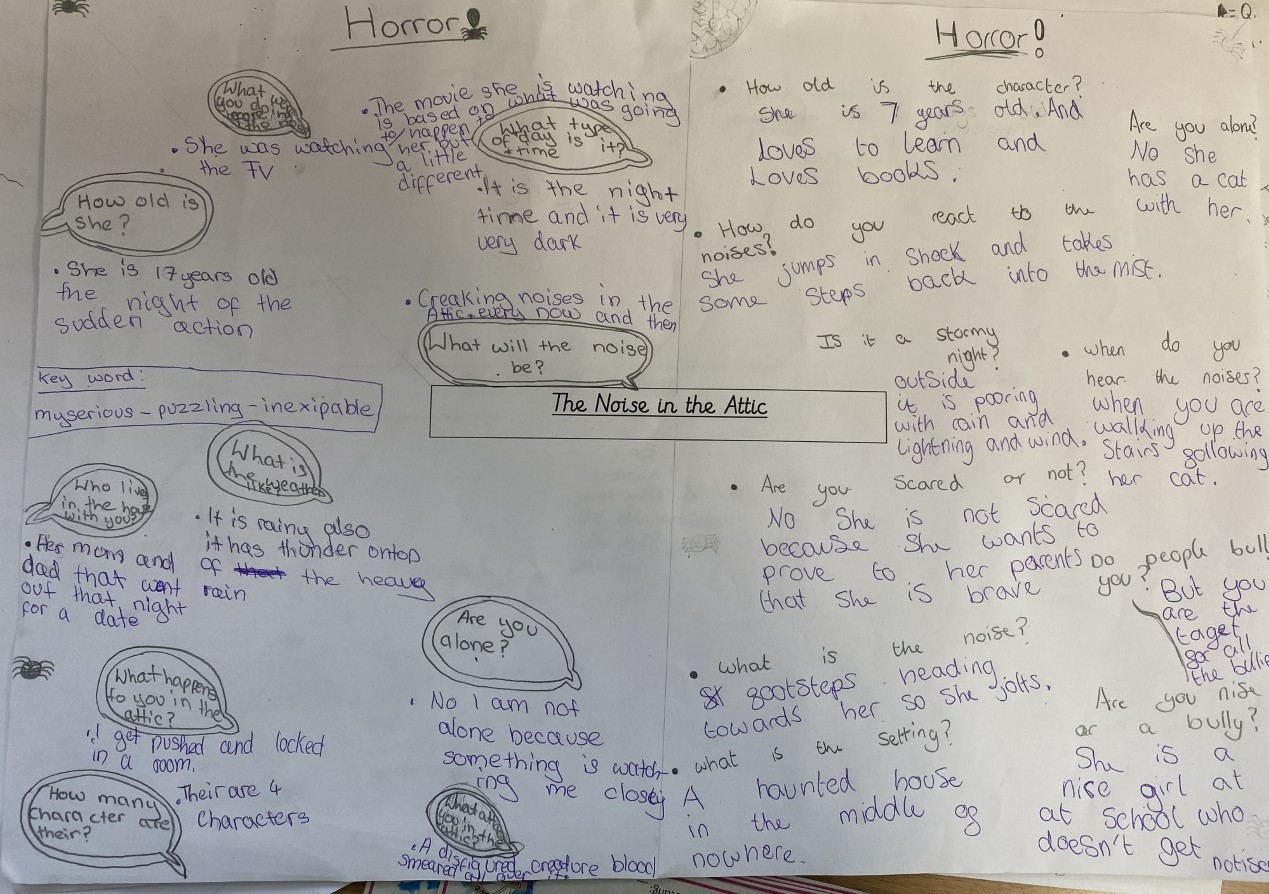 Horror!
What
you do
the
She was watching
the TV
The movie she is watching
is based on what was going
to happen to
her but
a little
different
What type
of day is
time it?
It is the night
time and it is very
very dark
How old is
she?
She is 17 years old
the night of the
sudden action
Creaking noises in the
Attic every now and then
What will the noise
be?
Key word:
myserious - puzzling - inexipable
The Noise in the Attic
What is
the weather
like?
Who live
in the house
with you?
It is rainy also
it has thunder ontop
of that the heavey
rain
Her mom and
dad that went
out that night
for a date
Are you
alone?
No I am not
alone because
something is watch-
ing me closey
What happens
to you in the
attic?
I get pushed and locked
in a room.
How many
character are
their?
Their are 4
characters
you in the
attic?
A disfigured creature blood
smeared all over
Horror!
A = Q.
How old is the character?
She is 7 years old. And
loves to learn and
Loves books.
Are you alone?
No she
has a cat
with her.
How do you react to the
noises?
She jumps in shock and takes
some steps back into the mist.
Is it a stormy
night?
outside
it is pooring
with rain and
lightning and wind.
when do you
hear the noises?
when you are
wallking up the
Stairs gollowing
her cat.
Are you scared or not?
No She is not scared
because she wants to
prove to her parents
that she is brave
Do people bull
you?
But you
are the
taget
gor all
the bullie
what is the noise?
gootsteps heading
towards her so she jolts.
Are you nise
or a bully?
She is a
nise girl at
at school who
doesn't get notise
what is the setting?
A haunted house
in the middle og
nowhere.